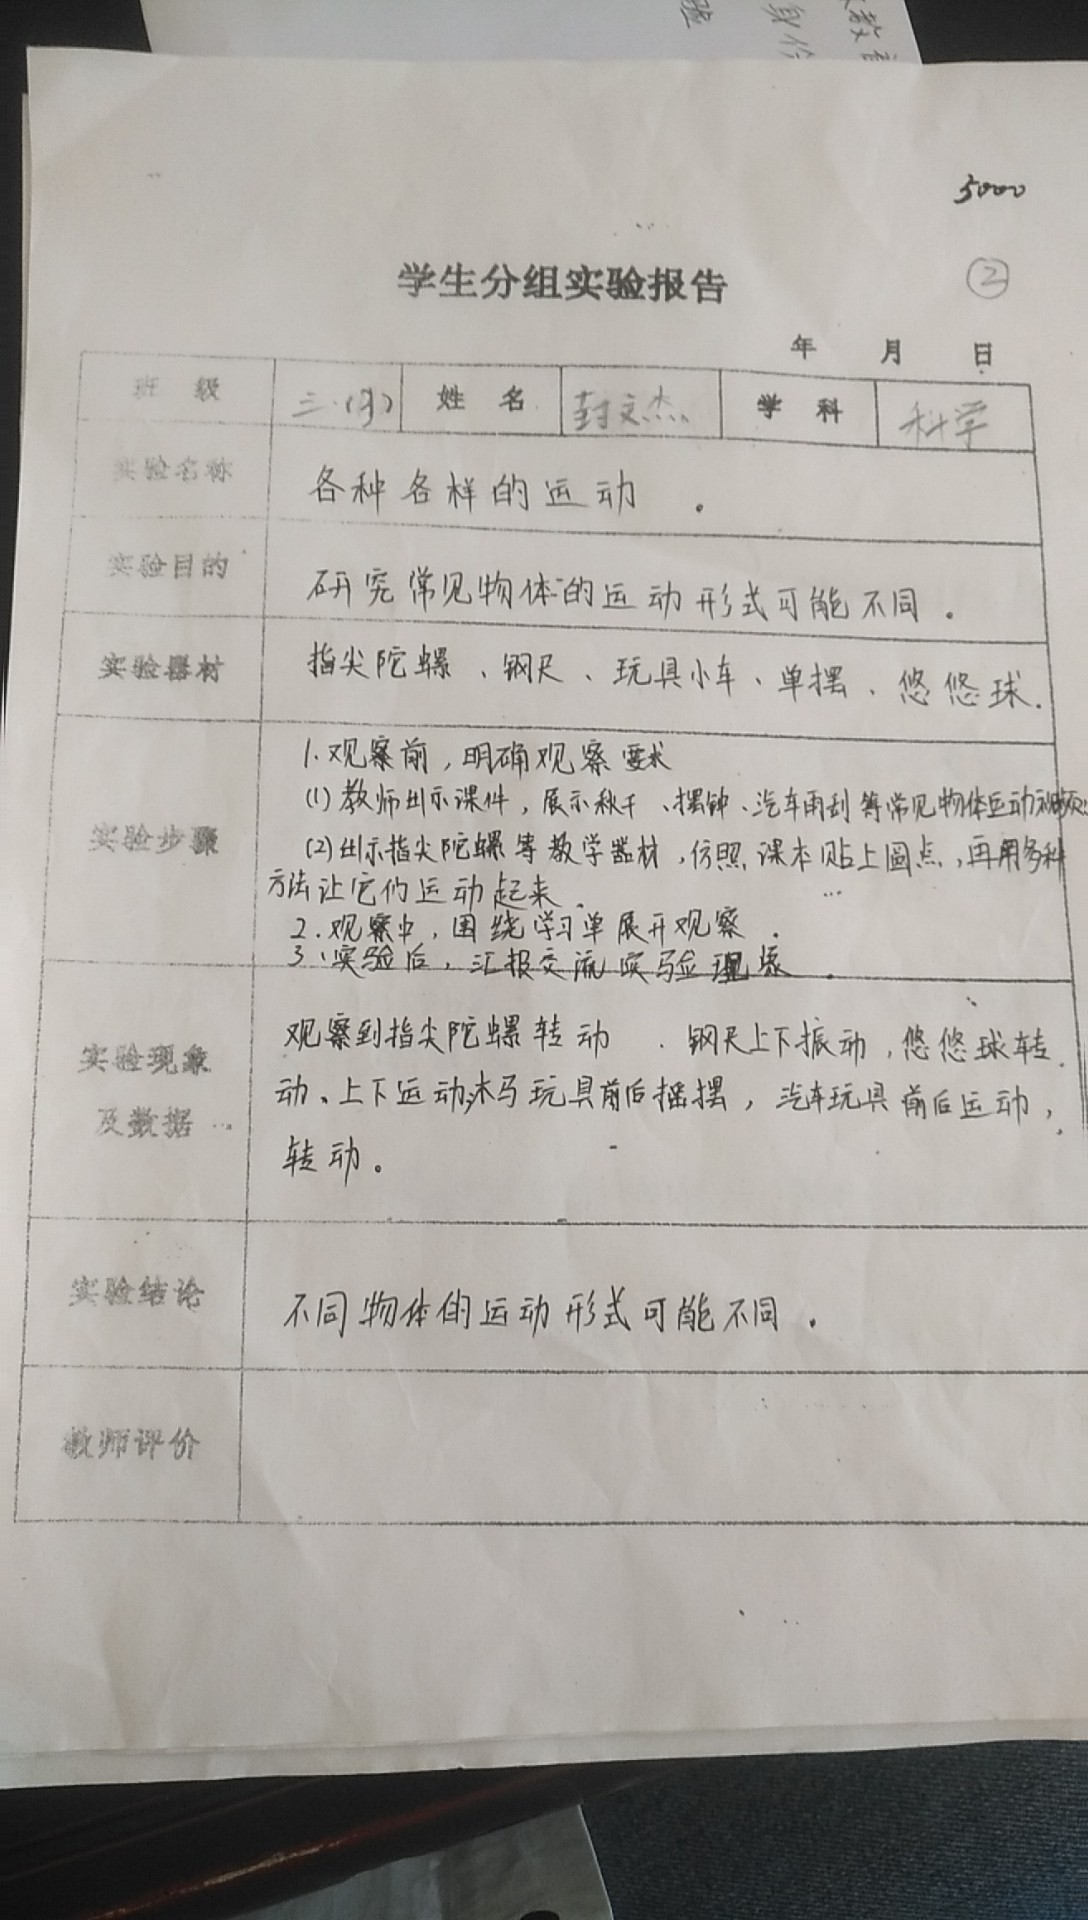 身份
验
5000
学生分组实验报告
②
年 月 日
班 级 三.(月) 姓 名 封文杰 学 科 科学
实验名称 各种各样的运动 .
实验目的 研究常见物体的运动形式可能不同.
实验器材 指尖陀螺、钢尺、玩具小车、单摆、悠悠球.
实验步骤
1.观察前,明确观察要求
(1)教师出示课件,展示秋千、摆钟、汽车雨刮等常见物体运动视频.
(2)出示指尖陀螺等教学器材,仿照课本贴上圆点,再用多种
方法让它们运动起来.
2.观察中,围绕学习单展开观察.
3.实验后,汇报交流实验现象.
实验现象
及数据
观察到指尖陀螺转动.钢尺上下振动,悠悠球转
动、上下运动,木马玩具前后摇摆,汽车玩具前后运动,
转动。
实验结论 不同物体的运动形式可能不同.
教师评价